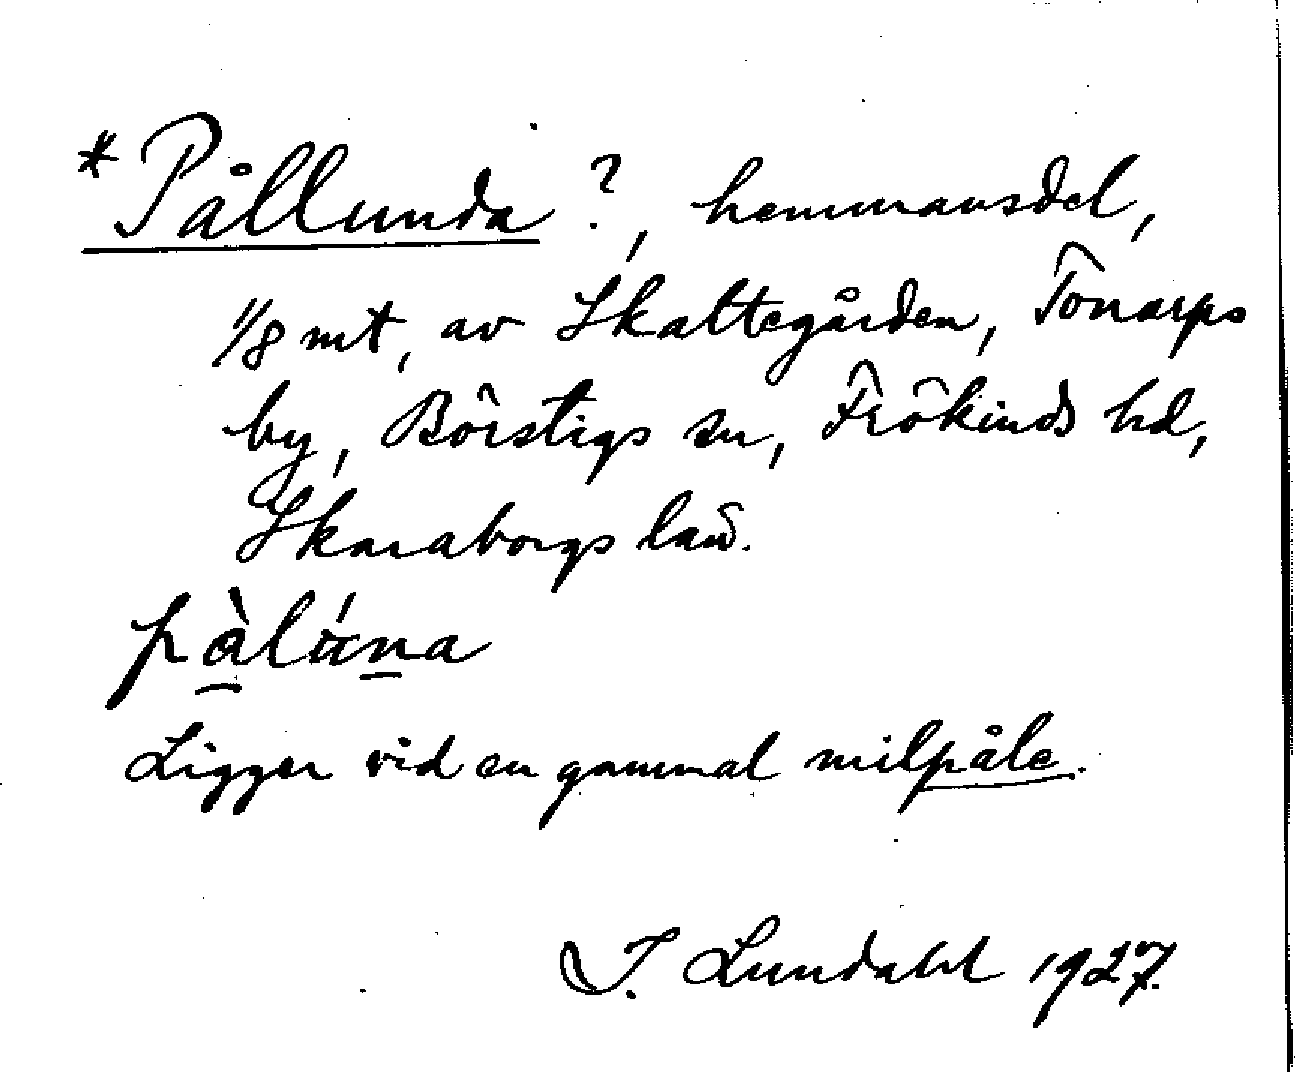 *Pållunda ?, hemmansdel,
1/8 mt, av Skattegården, Tonarps
by, Börstigs sn, Frökinds hd,
Skaraborgs län.
pàlána
Ligger vid en gammal milpåle.
I. Lundahl 1927.